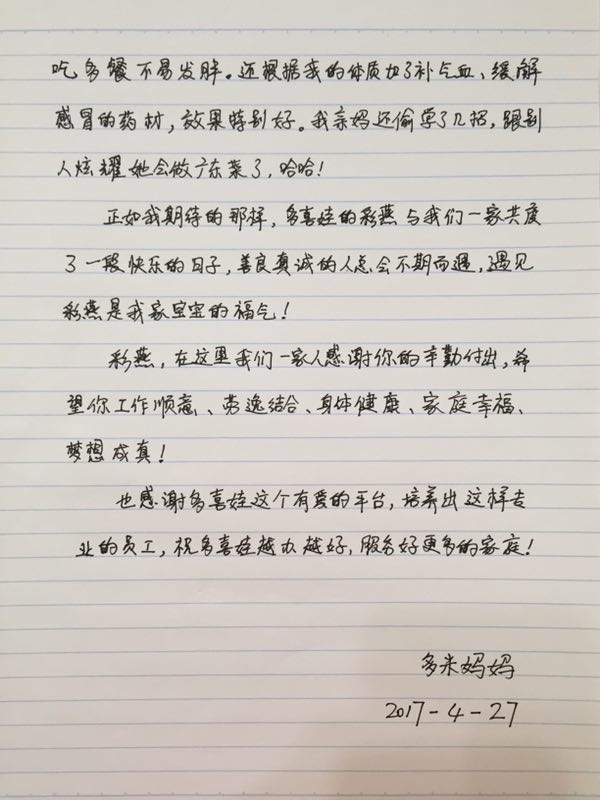 吃多餐不易发胖。还根据我的体质加了补气血、缓解
感冒的药材，效果特别好。我亲妈还偷学了几招，跟别
人炫耀她会做广东菜了，哈哈！
正如我期待的那样，多喜娃的彩燕与我们一家共度
了一段快乐的日子，善良真诚的人总会不期而遇，遇见
彩燕是我家宝宝的福气！
彩燕，在这里我们一家人感谢你的辛勤付出，希
望你工作顺意、劳逸结合、身体健康、家庭幸福、
梦想成真！
也感谢多喜娃这个有爱的平台，培养出这样专
业的员工，祝多喜娃越办越好，服务好更多的家庭！
多米妈妈
2017-4-27